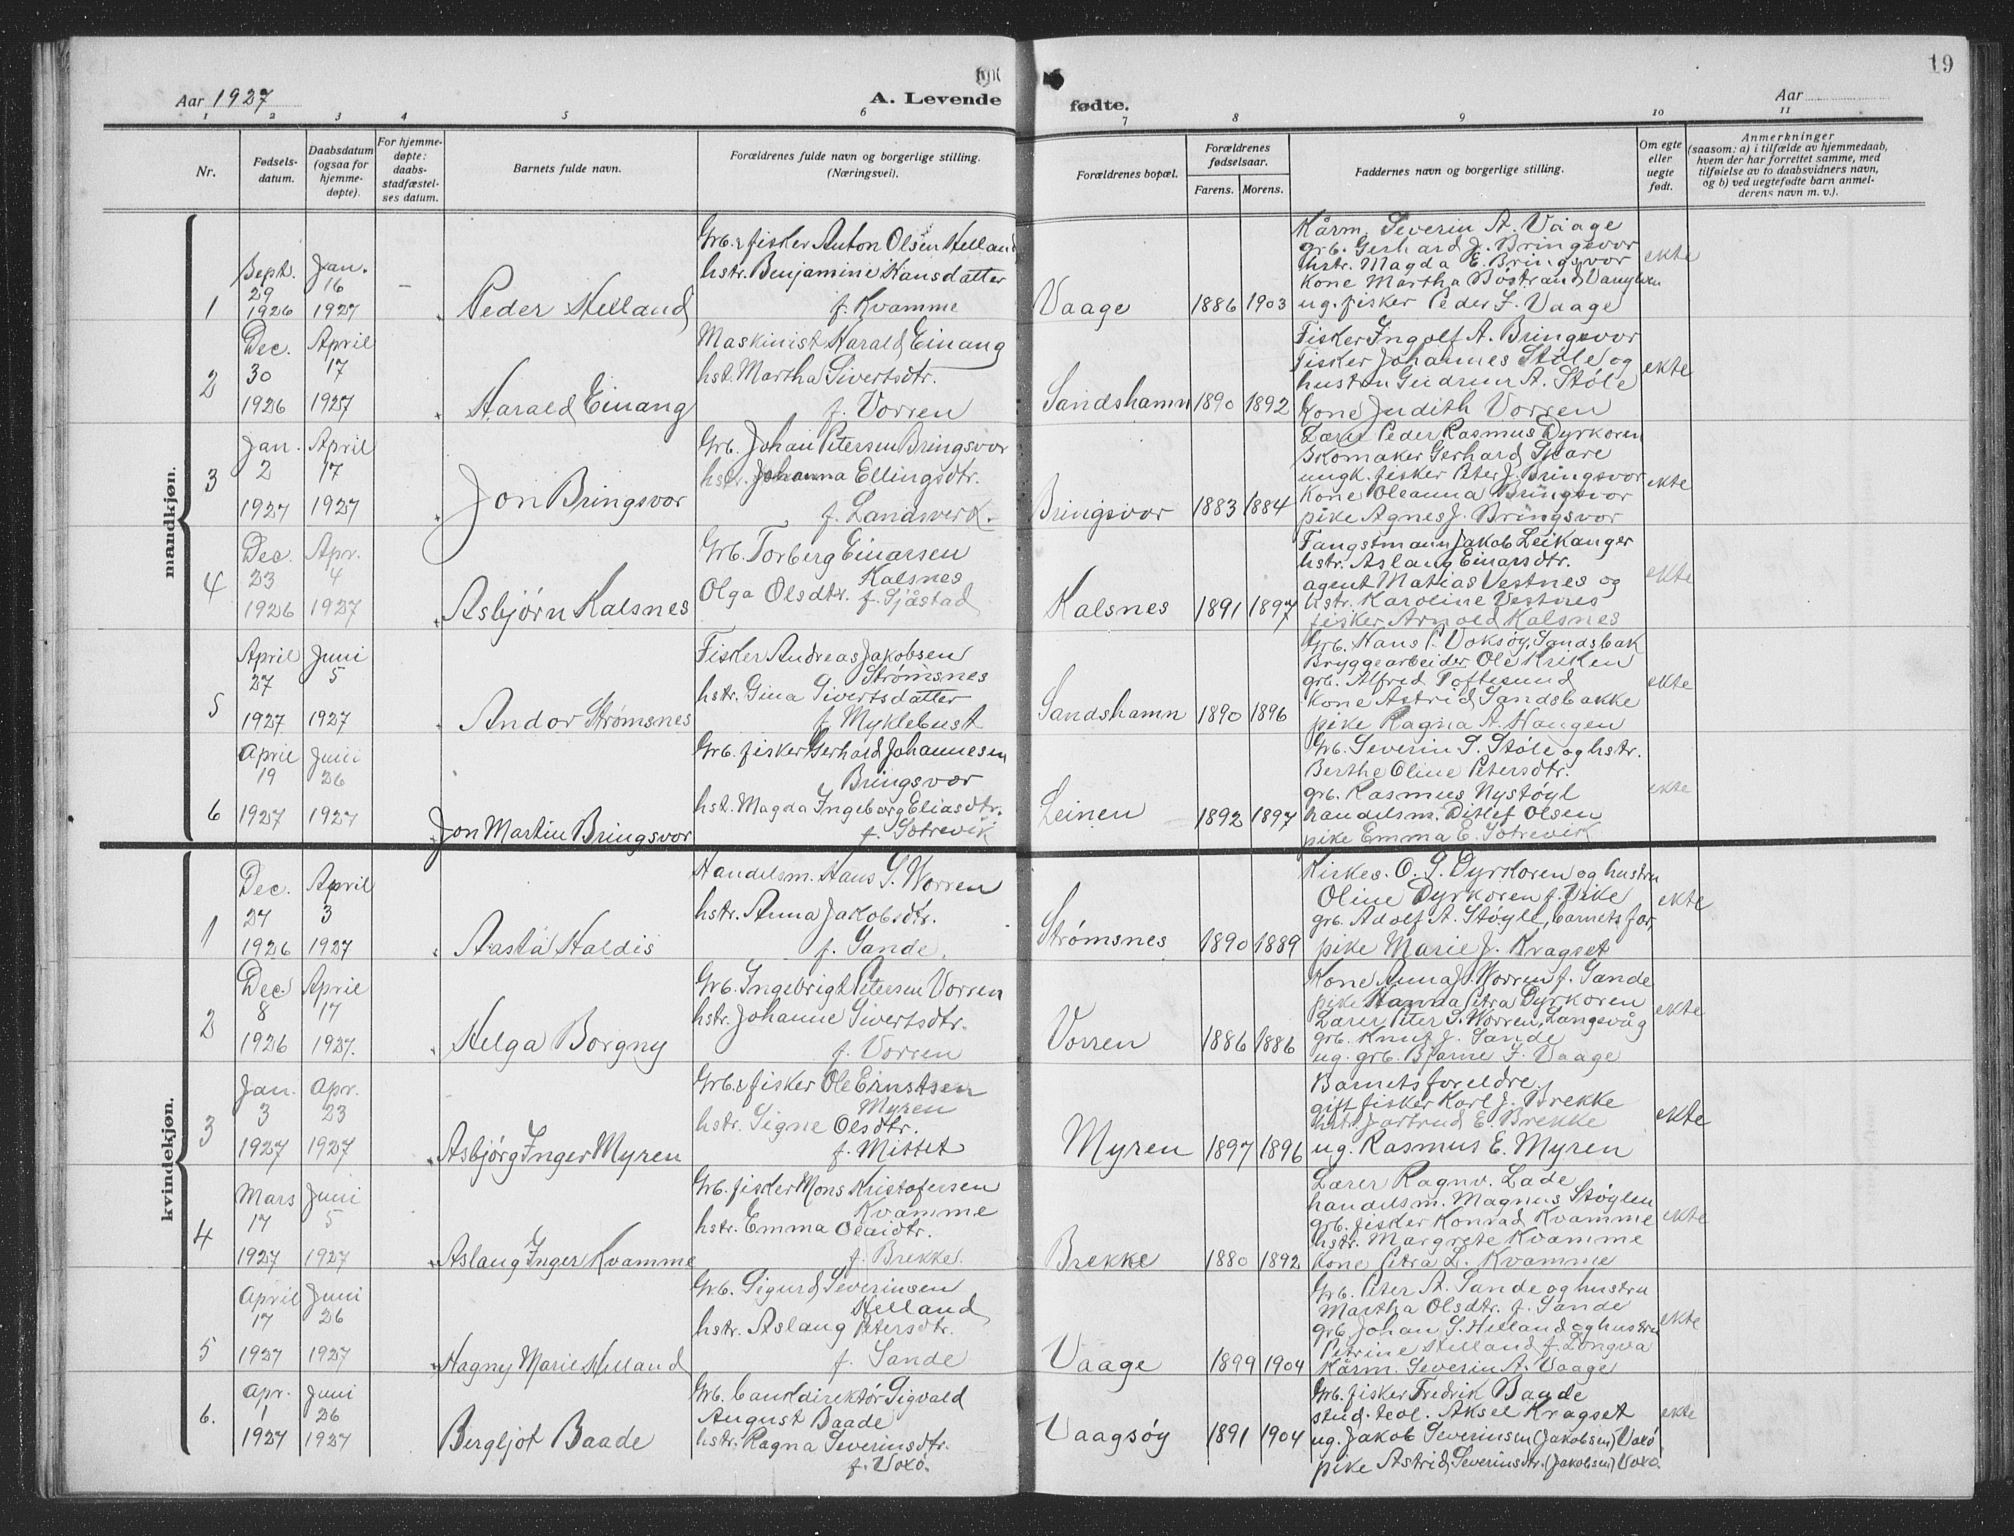 19
Aar 1927
A. Levende fødte.
Aar
1 2 3 4 5 6 7 8 9 10 11
Nr.
Fødsels-
datum.
Daabsdatum
(ogsaa for
hjemme-
døpte).
For hjemme-
døpte:
daabs-
stadfæstel-
ses datum.
Barnets fulde navn.
Forældrenes fulde navn og borgerlige stilling.
(Næringsvei).
Forældrenes bopæl.
Forældrenes
fødselsaar.
Farens. Morens.
Faddernes navn og borgerlige stilling.
Om egte
eller
uegte
født.
Anmerkninger
(saasom: a) i tilfælde av hjemmedaab,
hvem der har forrettet samme, med
tilføielse av to daabsvidners navn,
og b) ved uegtefødte barn anmel-
derens navn m. v.).
mandkjøn.
1
Sept. 29 1926
Jan. 16 1927
–
Peder Helland
Grb. & fisker Anton Olsen Helland
hstr. Benjamine Hansdatter
f. Kvamme
Vaage
1886 1903
Kårm. Severin A. Vaage
grb. Gerhard J. Bringsvor
hstr. Magda E. Bringsvor
Kone Martha Böstrand, Vanylven
ug. fisker Peder F. Vaage
ekte
2
Dec. 30 1926
April 17 1927
Harald Einang
Maskinist Harald Einang
hst. Martha Sivertsdtr.
f. Vorren
Sandshamn
1890 1892
Fisker Ingolf A. Bringsvor
Fisker Johannes Støle og
hustru Gudrun A. Støle
Kone Judith Vorren
ekte
3
Jan. 2 1927
April 17 1927
Jon Bringsvor
Grb. Johan Petersen Bringsvor
hstr. Johanna Ellingsdtr.
f. Landsverk.
Bringsvor
1883 1884
Lærer Peder Rasmus Dyrkoren
Skomaker Gerhard Skare
ungk. fisker Peter J. Bringsvor
Kone Oleanna Bringsvor
pike Agnes J. Bringsvor
ekte
4
Dec. 23 1926
Apr. 4 1927
Asbjørn Kalsnes
Grb. Torberg Einarsen
Kalsnes
Olga Olsdtr. f. Sjåstad
Kalsnes
1891 1897
Fangstmann Jakob Leikanger
hstr. Aslaug Einarsdtr.
agent Matias Vestnes og
hstr. Karoline Vestnes
fisker Arnold Kalsnes
ekte
5
April 27 1927
Juni 5 1927
Andor Strømsnes
Fisker Andreas Jakobsen
Strømsnes
hstr. Gina Sivertsdatter
f. Myklebust
Sandshamn
1890 1896
Grb. Hans P. Voksøy, Sandsbak
Bryggearbeider Ole Kriken
grb. Alfred Toftesund
Kone Astrid Sandsbakke
pike Ragna A. Haugen
ekte
6
April 19 1927
Juni 26 1927
Jon Martin Bringsvor
Grb. fisker Gerhard Johannesen
Bringsvor
hst. Magda Ingeborg Eliasdtr.
f. Sætrevik
Leinen
1892 1897
Grb. Severin S. Støle og hstr.
Berthe Oline Petersdtr.
grb. Rasmus Nystøyl
handelsm. Ditlef Olsen
pike Emma E. Sætrevik
ekte
kvindekjøn.
1
Dec. 27 1926
April 3 1927
Aasta Haldis
Handelsm. Hans S. Worren
hstr. Anna Jakobsdtr.
f. Sande.
Strømsnes
1890 1889
Kirkes. O. P. Dyrkoren og hustru
Oline Dyrkoren f. Vike
grb. Adolf A. Støyle, barnets far,
pike Marie J. Kragset
ekte
2
Dec. 8 1926
April 17 1927.
Helga Borgny
Grb. Ingebrigt Petersen Vorren
hstr. Johanne Sivertsdtr.
f. Vorren
Vorren
1886 1886
Kone Anna J. Worren f. Sande
pike Hanna Petra Dyrkoren
Lærer Peter S. Worren, Langevåg
grb. Knut J. Sande
ug. grb. Bjarne F. Vaage
ekte
3
Jan. 3 1927
Apr. 23 1927
Asbjørg Inger Myren
Grb. & fisker Ole Ernstsen
Myren
hstr. Signe Olsdtr.
f. Mittet
Myren
1897 1896
Barnets foreldre.
gift fisker Karl J. Brekke
hstr. Jartrud E. Brekke
ug. Rasmus E. Myren
ekte
4
Mars 17 1927
Juni 5 1927
Aslaug Inger Kvamme
Grb. fisker Mons Kristofersen
Kvamme
hstr. Emma Olaidtr.
f. Brekke.
Brekke
1880 1892
Lærer Ragnv. Lade
handelsm. Magnus Støylen
grb. fisker Konrad Kvamme
hstr. Margrete Kvamme
Kone Petra L. Kvamme
ekte
5
April 17 1927
Juni 26 1927
Hagny Marie Helland
Grb. Sigurd Severinsen
Helland
hstr. Aslaug Petersdtr.
f. Sande
Vaage
1899 1904
Grb. Peter A. Sande og hustru
Martha Olsdtr. f. Sande
grb Johan S. Helland og hustru
Petrine Helland f. Longva
Kårm. Severin A. Vaage
ekte
6.
Apr. 1 1927
Juni 26 1927
Bergljot Baade
Grb. bankdirektør Sigvald
August Baade
hstr. Ragna Severinsdtr.
f. Voxø.
Vaagsøy
1891 1904
Grb. fisker Fredrik Baade
stud. teol. Aksel Kragset
ug. Jakob Severinsen (Jakobsen) Voxø
pike Astrid Severinsdtr. (Jakobsen) Voxø.
ekte